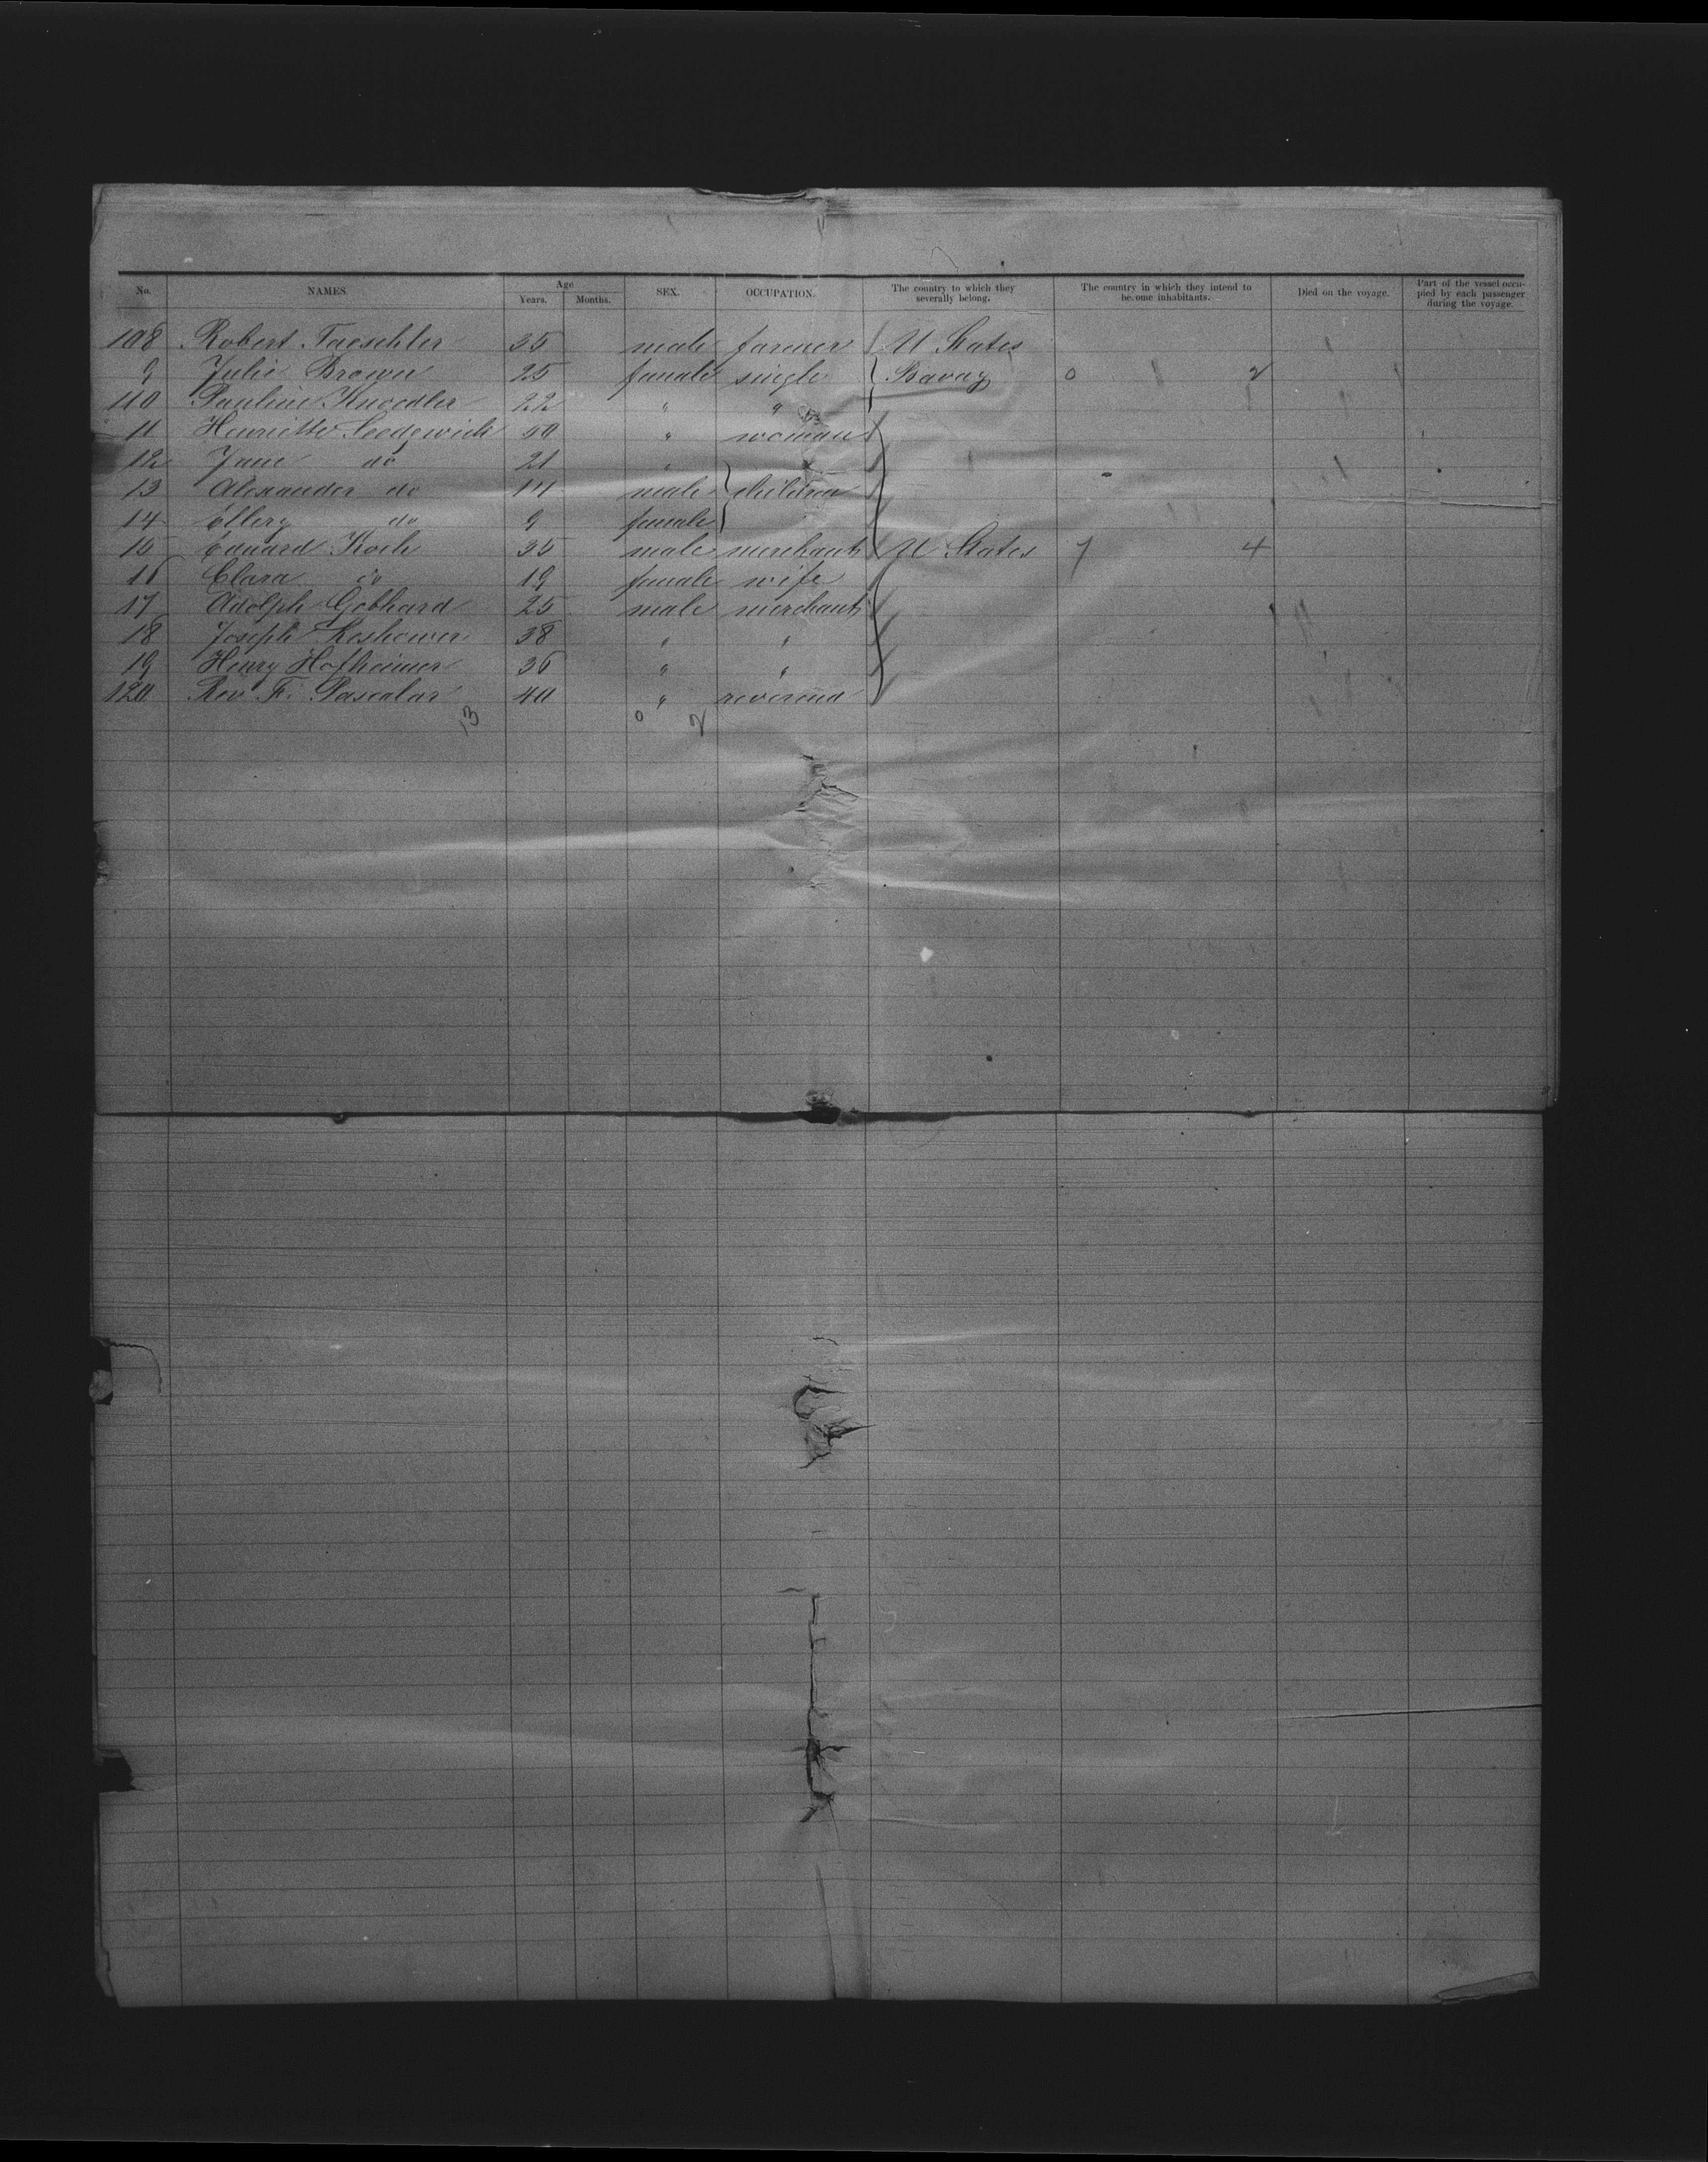 No. NAMES. Age Years. Months. SEX. OCCUPATION. The country to which they severally belong. The country in which they intend to become inhabitants. Died on the voyage. Part of the vessel occupied by each passenger during the voyage.
108 Robert Taeschler 35 male farmer U States
9 Julie Brown 25 female single Bavay 0 2
110 Pauline Knoedler 22 " "
11 Henriette 50 " woman
12 Jane do 21 "
13 Alexander do 17 male children
14 Ellery do 9 female
15 Eduard Koch 35 male merchant U States 7 4
16 Clara do 19 female wife
17 Adolph Gebhard 25 male merchant
18 Joseph 38 " "
19 Henry Hofheimer 36 " "
120 Rev F. Pascalar 40 " reverend
13 0 2